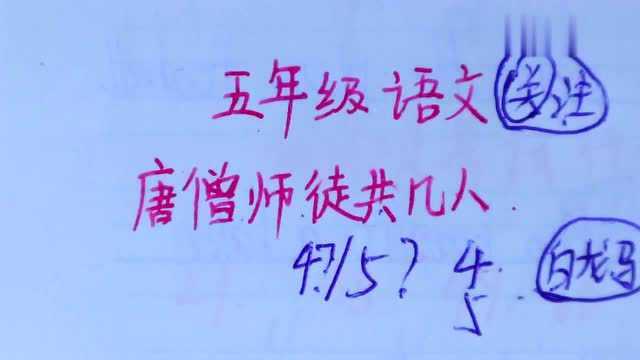 五年级 语文 关注
唐僧师徒共几人
4?/5? 4. 白龙马
5